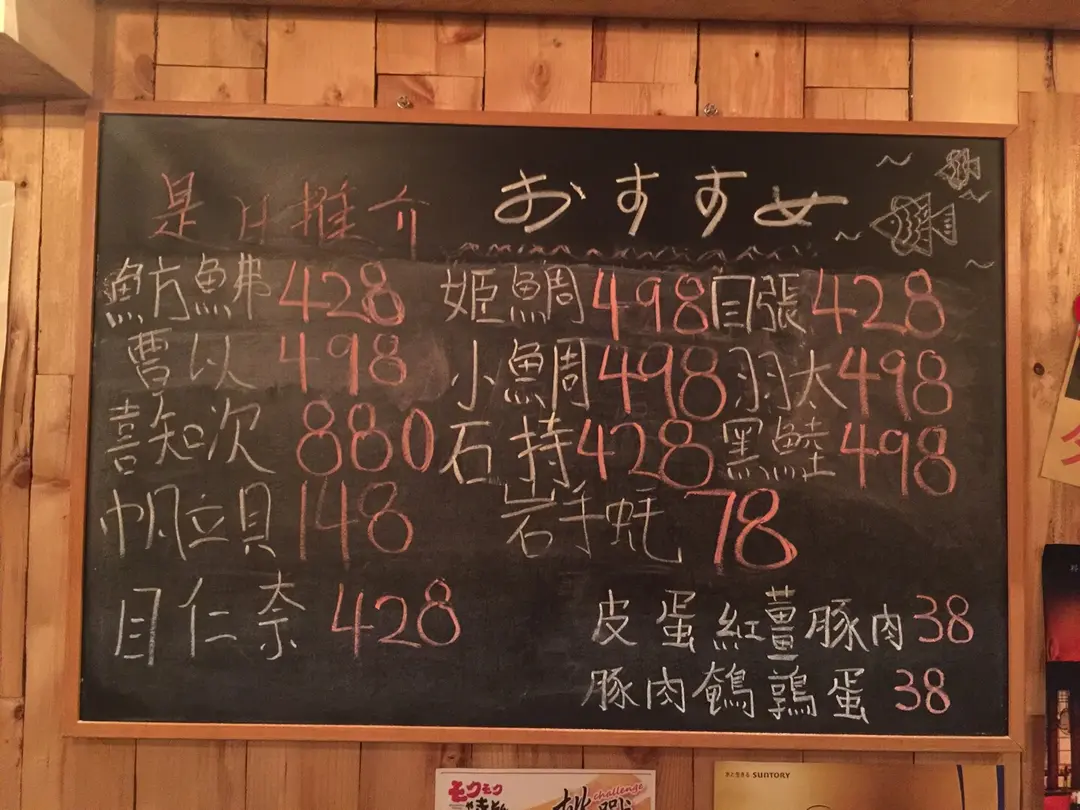 是日推介 おすすめ
魴鮄 428 姫鯛 498 目張 428
曹以 498 小鯛 498 羽太 498
喜知次 880 石持 428 黑鯥 498
帆立貝 148 岩手蚝 78
目仁奈 428
皮蛋紅薑豚肉 38
豚肉鵪鶉蛋 38
モクモク
challenge
挑戰
水と生きる SUNTORY